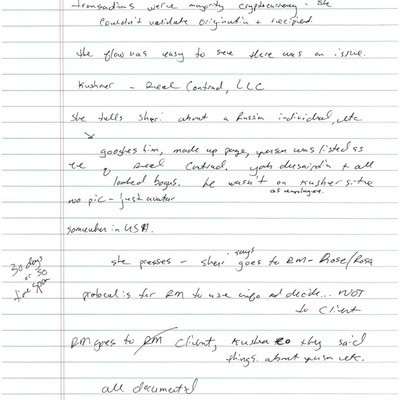 transactions were majority cryptocurrency. she
couldn't validate origination + recipient.
the flow was easy to see there was an issue.
Kushner - Real Contrad, LLC
she tells Sheri about a Russia individual, etc
googles him, made up page, person was listed as
of Real Contrad. job description + all
looked bogus. he wasn't on Kushner site
as employee.
no pic - just avatar
somewhere in USA.
she presses - Sheri says goes to RM - Rose/Rosa
30 days
or so
time span
protocol is for RM to use info and decide... NOT
to client
RM goes to client, Kushner they said
things about person etc.
all documented